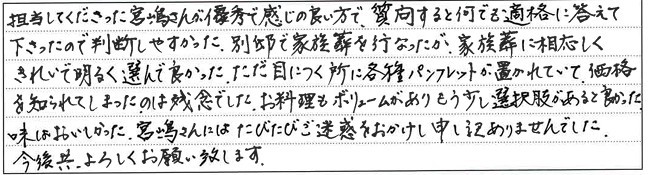 担当してくださった宮嶋さんが優秀で感じの良い方で、質問すると何でも適格に答えて
下さったので判断しやすかった。別邸で家族葬を行なったが、家族葬に相応しく
きれいで明るく選んで良かった。ただ目につく所に各種パンフレットが置かれていて、価格
を知られてしまったのは残念でした。お料理もボリュームがありもう少し選択肢があると良かった。
味はおいしかった。宮嶋さんにはたびたびご迷惑をおかけし申し訳ありませんでした。
今後共、よろしくお願い致します。